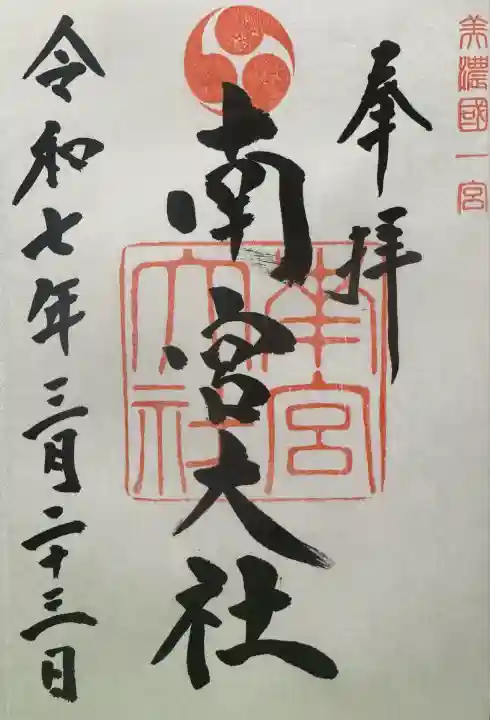 美濃國一宮
奉拝
南宮大社
南宮
大社
令和七年三月二十三日